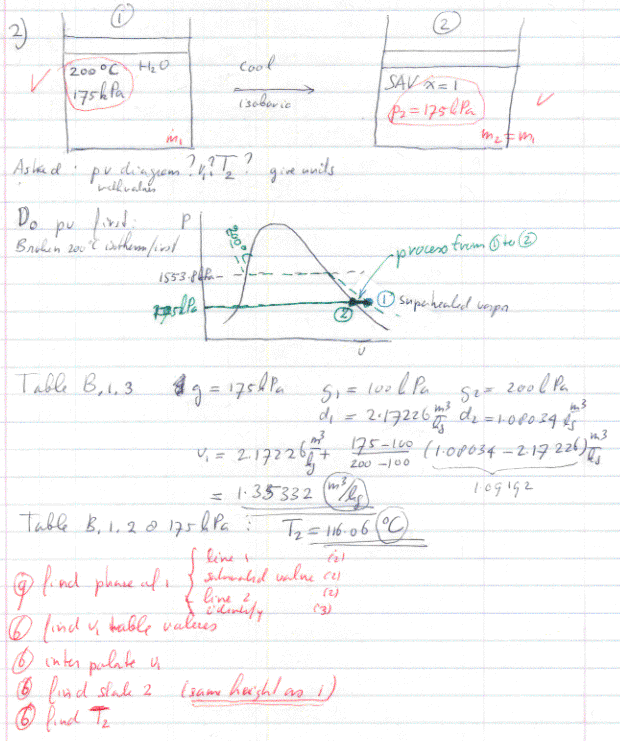 2)
①
②
200°C H₂O
175 kPa
ṁ₁
cool
isobaric
SAV x = 1
p₂ = 175 kPa
m₂ = m₁
Asked: pv diagram? v₁? T₂? give units
with values
Do pv first:
Broken 200°C isotherm first
P
200°C
1553.8 kPa
175 kPa
process from ① to ②
① superheated vapor
②
v
Table B.1.3 g = 175 kPa g₁ = 100 kPa g₂ = 200 kPa
d₁ = 2.17226 m³/kg d₂ = 1.08034 m³/kg
v₁ = 2.17226 m³/kg + (175 - 100)/(200 - 100) (1.08034 - 2.17226) m³/kg
1.09192
= 1.35332 m³/kg
Table B.1.2 @ 175 kPa: T₂ = 116.06 °C
⑨ find phase of 1 { line 1 (2)
saturated value (2)
line 2 (2)
identify (3)
⑥ find v₁ table values
⑥ interpolate v₁
⑥ find state 2 (same height as 1)
⑥ find T₂